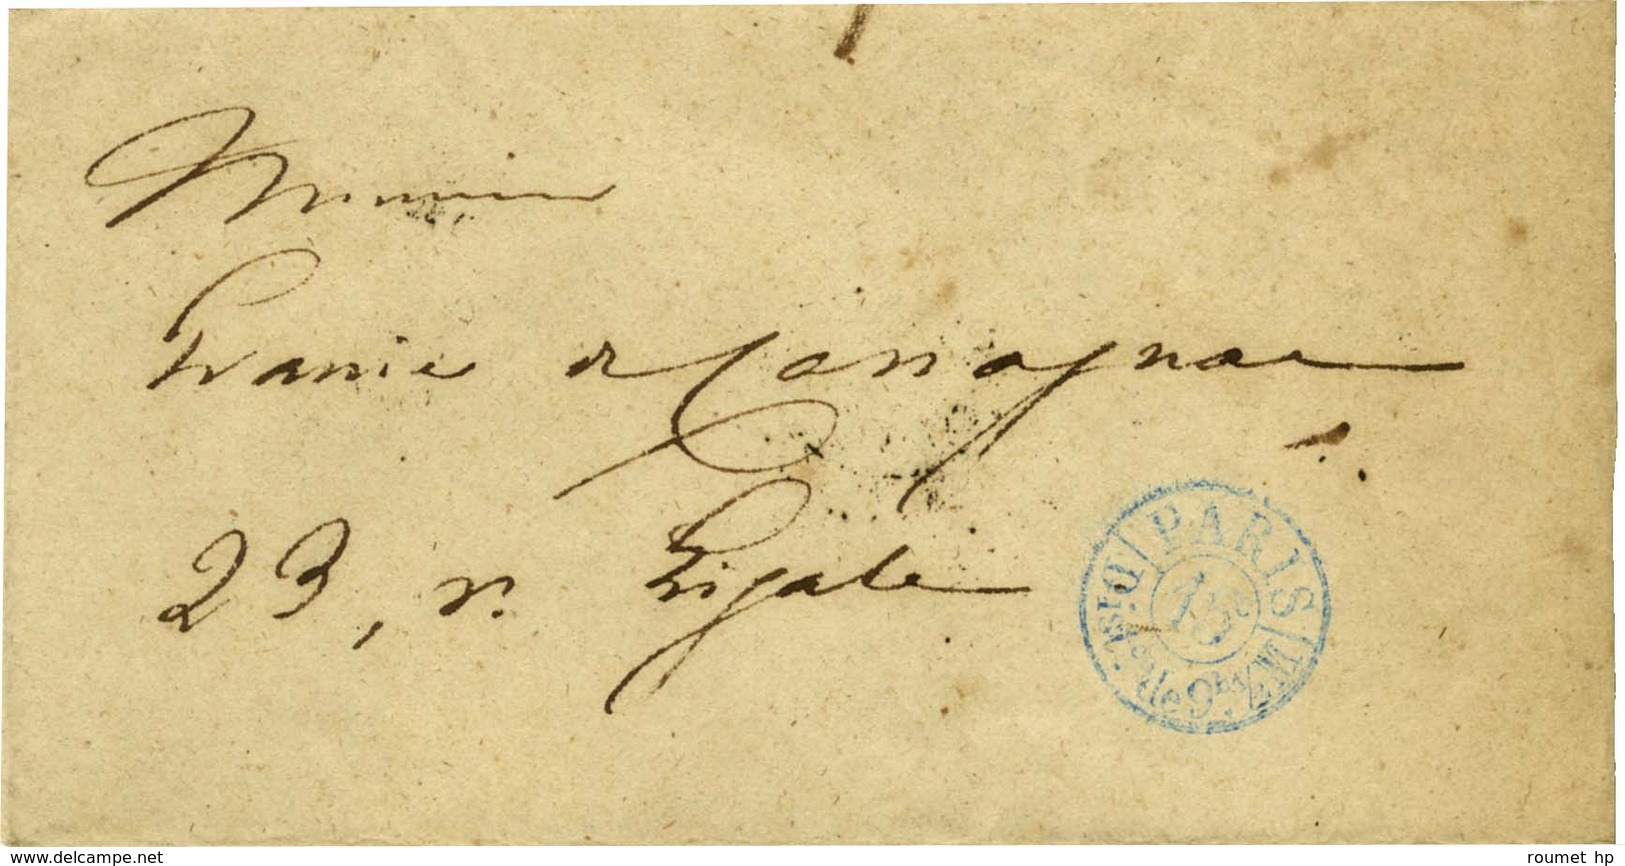 Monsieur
Granier de Cassagnac
23, r. Pigale
PARIS
15c
www.delcampe.net
roumet hp